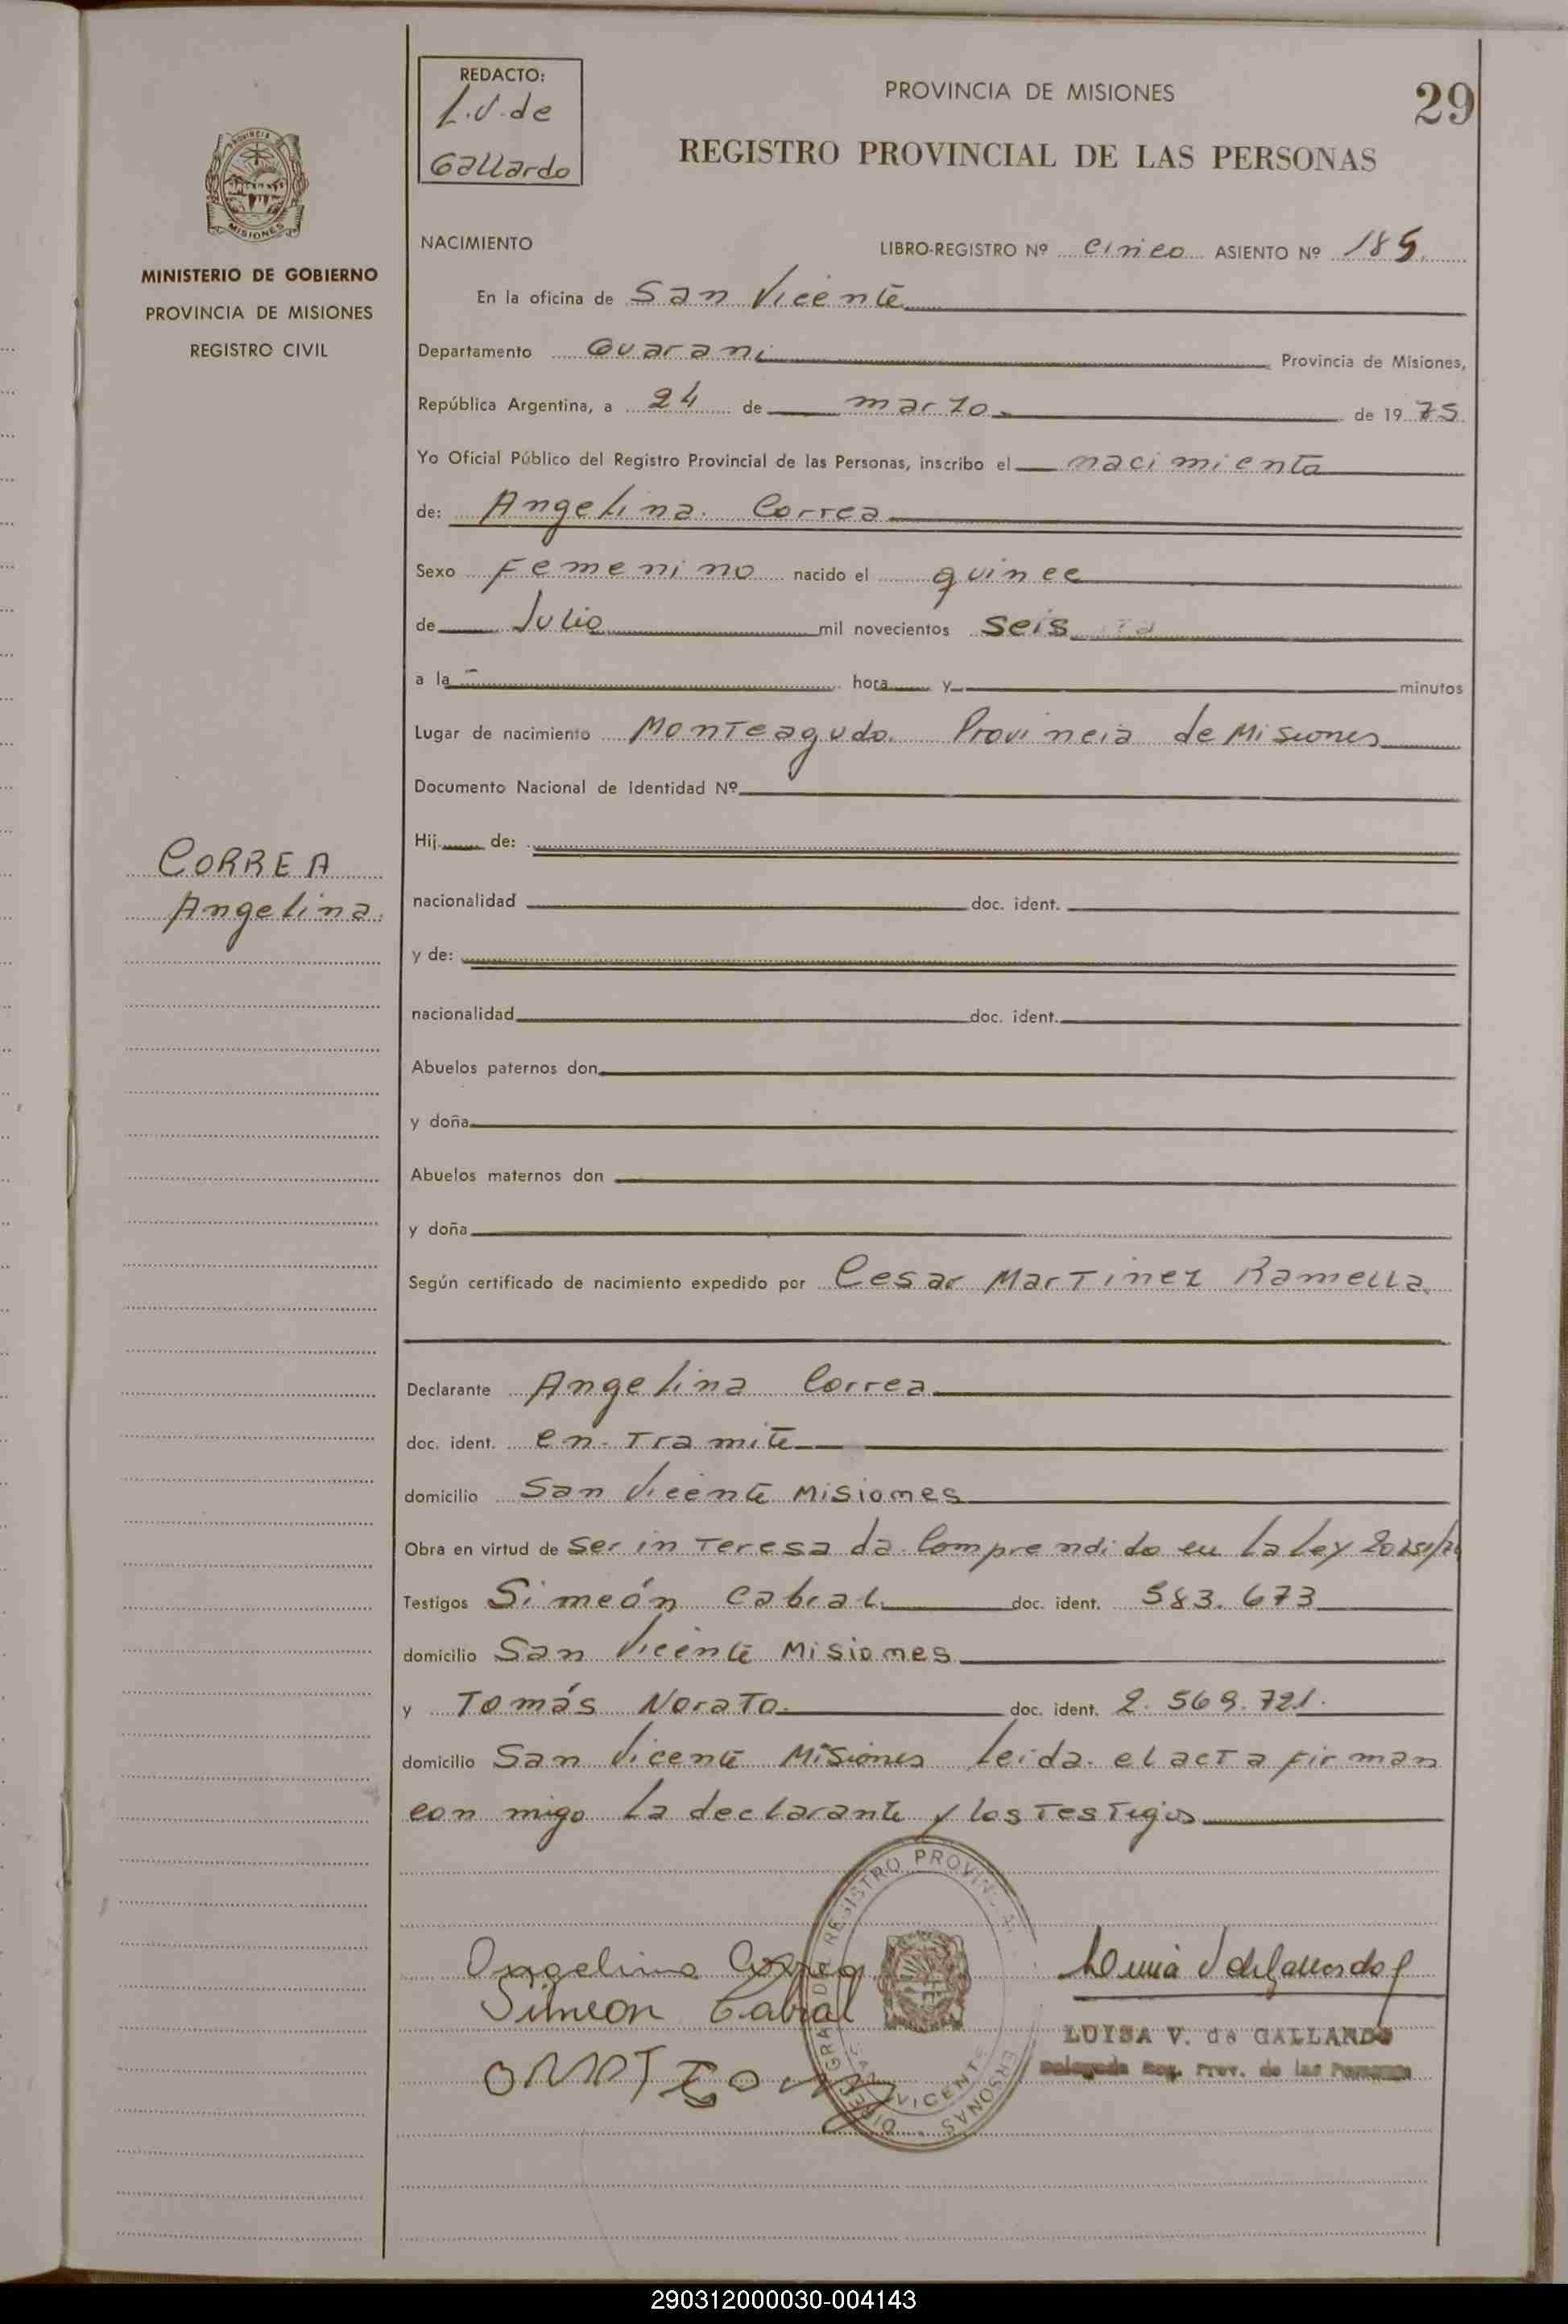 REDACTO:
L.V. de
Gallardo
PROVINCIA DE MISIONES
29
REGISTRO PROVINCIAL DE LAS PERSONAS
MISIONES
MINISTERIO DE GOBIERNO
PROVINCIA DE MISIONES
REGISTRO CIVIL
NACIMIENTO LIBRO-REGISTRO Nº cinco ASIENTO Nº 185
En la oficina de San Vicente
Departamento Guarani Provincia de Misiones,
República Argentina, a 24 de marzo de 1975
Yo Oficial Público del Registro Provincial de las Personas, inscribo el nacimiento
de: Angelina Correa
Sexo Femenino nacido el quince
de Julio mil novecientos seis
a la hora y minutos
Lugar de nacimiento Monteagudo Provincia de Misiones
Documento Nacional de Identidad Nº
Hij de:
CORREA
Angelina
nacionalidad doc. ident.
y de:
nacionalidad doc. ident.
Abuelos paternos don
y doña
Abuelos maternos don
y doña
Según certificado de nacimiento expedido por Cesar Martinez Ramella
Declarante Angelina Correa
doc. ident. en tramite
domicilio San Vicente Misiones
Obra en virtud de ser interesada Comprendido en la Ley
Testigos Simeón Cabral doc. ident. 583.673
domicilio San Vicente Misiones
y Tomás Norato doc. ident. 2.569.721
domicilio San Vicente Misiones leida el acta firman
conmigo la declarante y los testigos
REGISTRO PROVINCIAL
PERSONAS
SAN VICENTE
Angelina Correa
Simeon Cabral
LUISA V. de GALLARDO
Delegada Reg. Prov. de las Personas
290312000030-004143